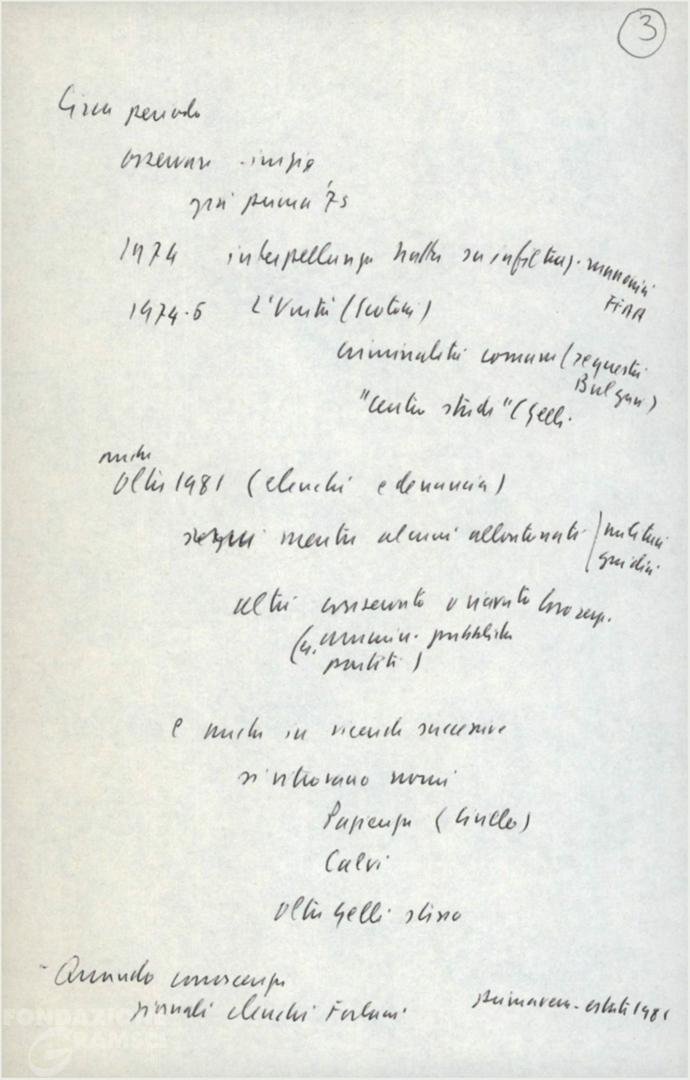 3
Circa periodo
osservare
già prima '75
1974 interpellanza su infiltraz. massonici
FIAA
1974-5 L'Unità (Scottoni)
criminalità comune (sequestri
Bulgari)
"centro studi" (Gelli.
anche
Oltre 1981 (elenchi e denuncia)
mentre alcuni allontanati militari
giudici
altri conservato o riavuto loro
(a. ammin. pubblica
partiti)
E anche in vicende successive
si ritrovano nomi
Pazienza (Cirillo)
Calvi
Oltre Gelli stesso
- Quando conoscenza
giornali elenchi Forlani primavera-estate 1981
FONDAZIONE
GRAMSCI